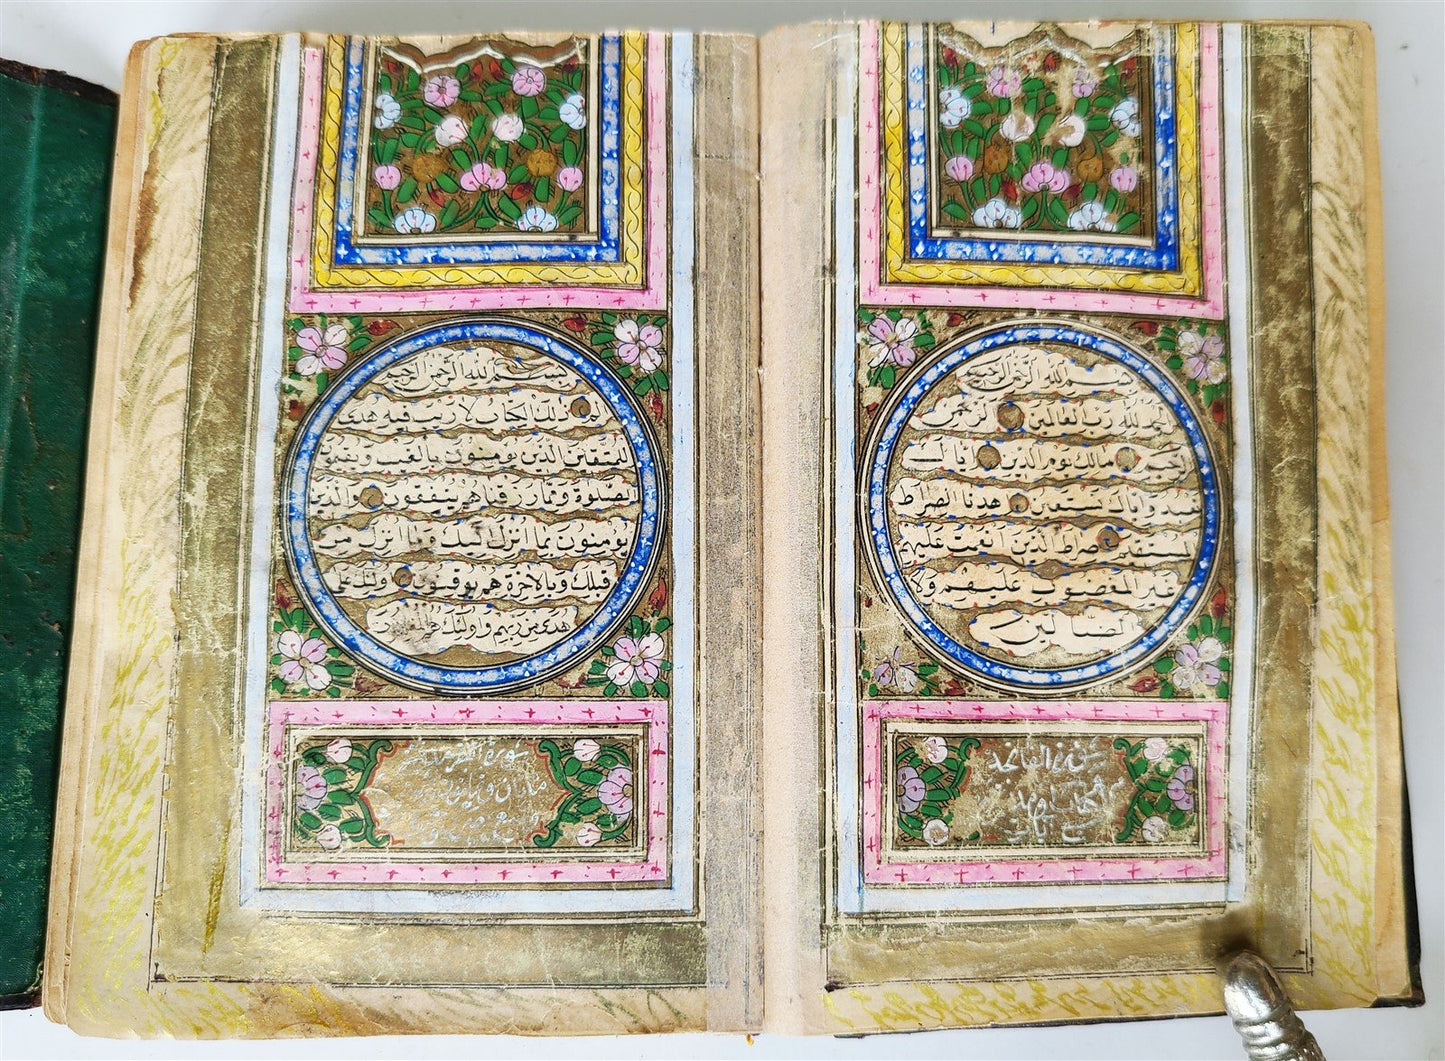 بسم الله الرحمن الرحيم
الحمد لله رب العالمين الرحمن
الرحيم مالك يوم الدين اياك
نعبد واياك نستعين اهدنا الصراط
المستقيم صراط الذين انعمت عليهم
غير المغضوب عليهم ولا
الضالين
سورة الفاتحة
الكتاب
آيات
بسم الله الرحمن الرحيم
الم ذلك الكتاب لا ريب فيه هدى
للمتقين الذين يومنون بالغيب ويقيمون
الصلوة ومما رزقناهم ينفقون والذين
يومنون بما انزل اليك وما انزل من
قبلك وبالاخرة هم يوقنون اولئك على
هدى من ربهم واولئك هم المفلحون
سورة البقرة